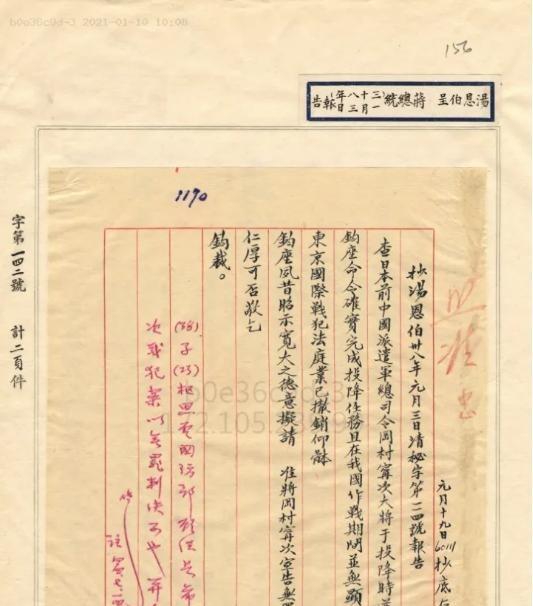 b0e36c9d-3 2021-01-10 10:08
156
湯恩伯呈 蔣總統(三十八年一月三日)報告
1170
字第一四二號 計二頁件
照准 中
元月十九日 抄底存
抄湯恩伯卅八年元月三日清秘字第二四號報告
查日本前中國派遣軍總司令岡村寧次大將于投降時
鈞座命令確實完成投降任務且在我國作戰期間並無顯
東京國際戰犯法庭業已撤銷仰體
鈞座夙昔昭示寬大之德意擬請 准將岡村寧次宣告無罪
仁厚可否敬乞
鈞裁。
(38)子(23)
次戰犯案以無罪判決
b0e36c9d